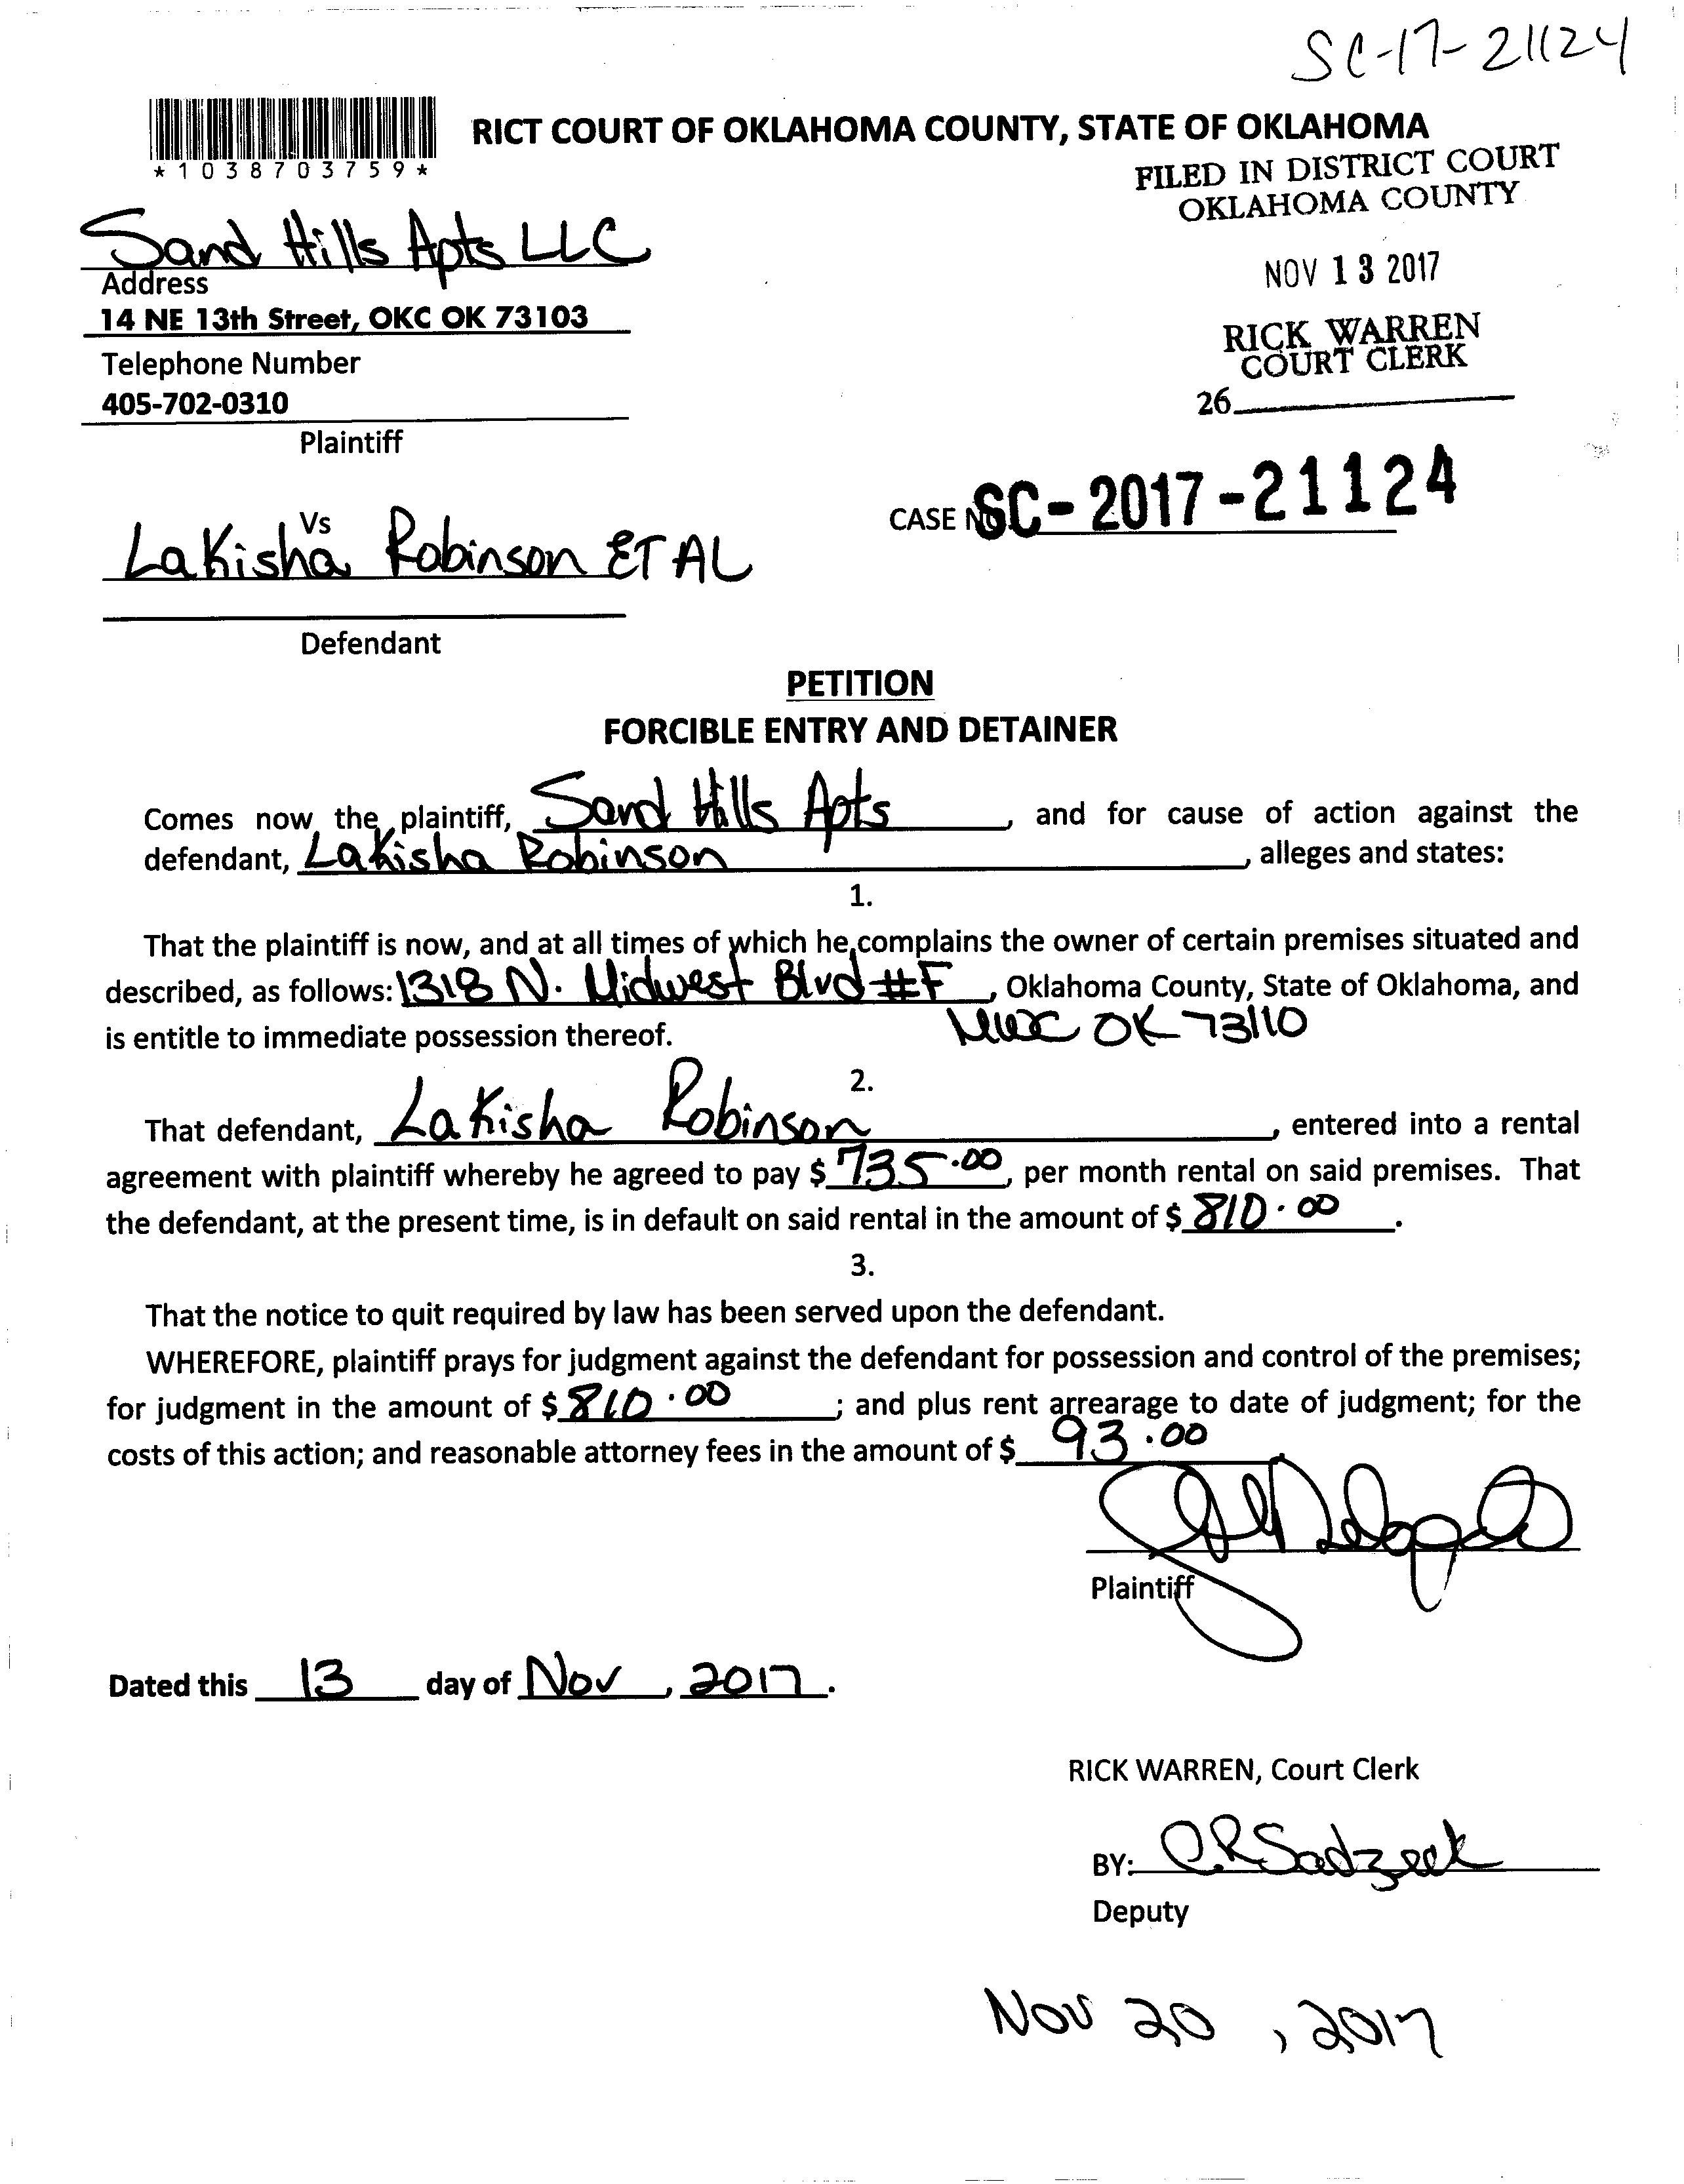 SC-17-21124
RICT COURT OF OKLAHOMA COUNTY, STATE OF OKLAHOMA
*1038703759*
FILED IN DISTRICT COURT
OKLAHOMA COUNTY
Sand Hills Apts LLC
Address
NOV 13 2017
14 NE 13th Street, OKC OK 73103
RICK WARREN
COURT CLERK
Telephone Number
405-702-0310
26
Plaintiff
Vs
CASE NO. SC-2017-21124
LaKisha Robinson ET AL
Defendant
PETITION
FORCIBLE ENTRY AND DETAINER
Comes now the plaintiff, Sand Hills Apts, and for cause of action against the
defendant, LaKisha Robinson, alleges and states:
1.
That the plaintiff is now, and at all times of which he complains the owner of certain premises situated and
described, as follows: 1318 N. Midwest Blvd #F, Oklahoma County, State of Oklahoma, and
is entitle to immediate possession thereof. MWC OK 73110
2.
That defendant, LaKisha Robinson, entered into a rental
agreement with plaintiff whereby he agreed to pay $ 735.00, per month rental on said premises. That
the defendant, at the present time, is in default on said rental in the amount of $ 810.00.
3.
That the notice to quit required by law has been served upon the defendant.
WHEREFORE, plaintiff prays for judgment against the defendant for possession and control of the premises;
for judgment in the amount of $ 810.00; and plus rent arrearage to date of judgment; for the
costs of this action; and reasonable attorney fees in the amount of $ 93.00
Plaintiff
Dated this 13 day of Nov, 2017.
RICK WARREN, Court Clerk
BY:
Deputy
Nov 20, 2017